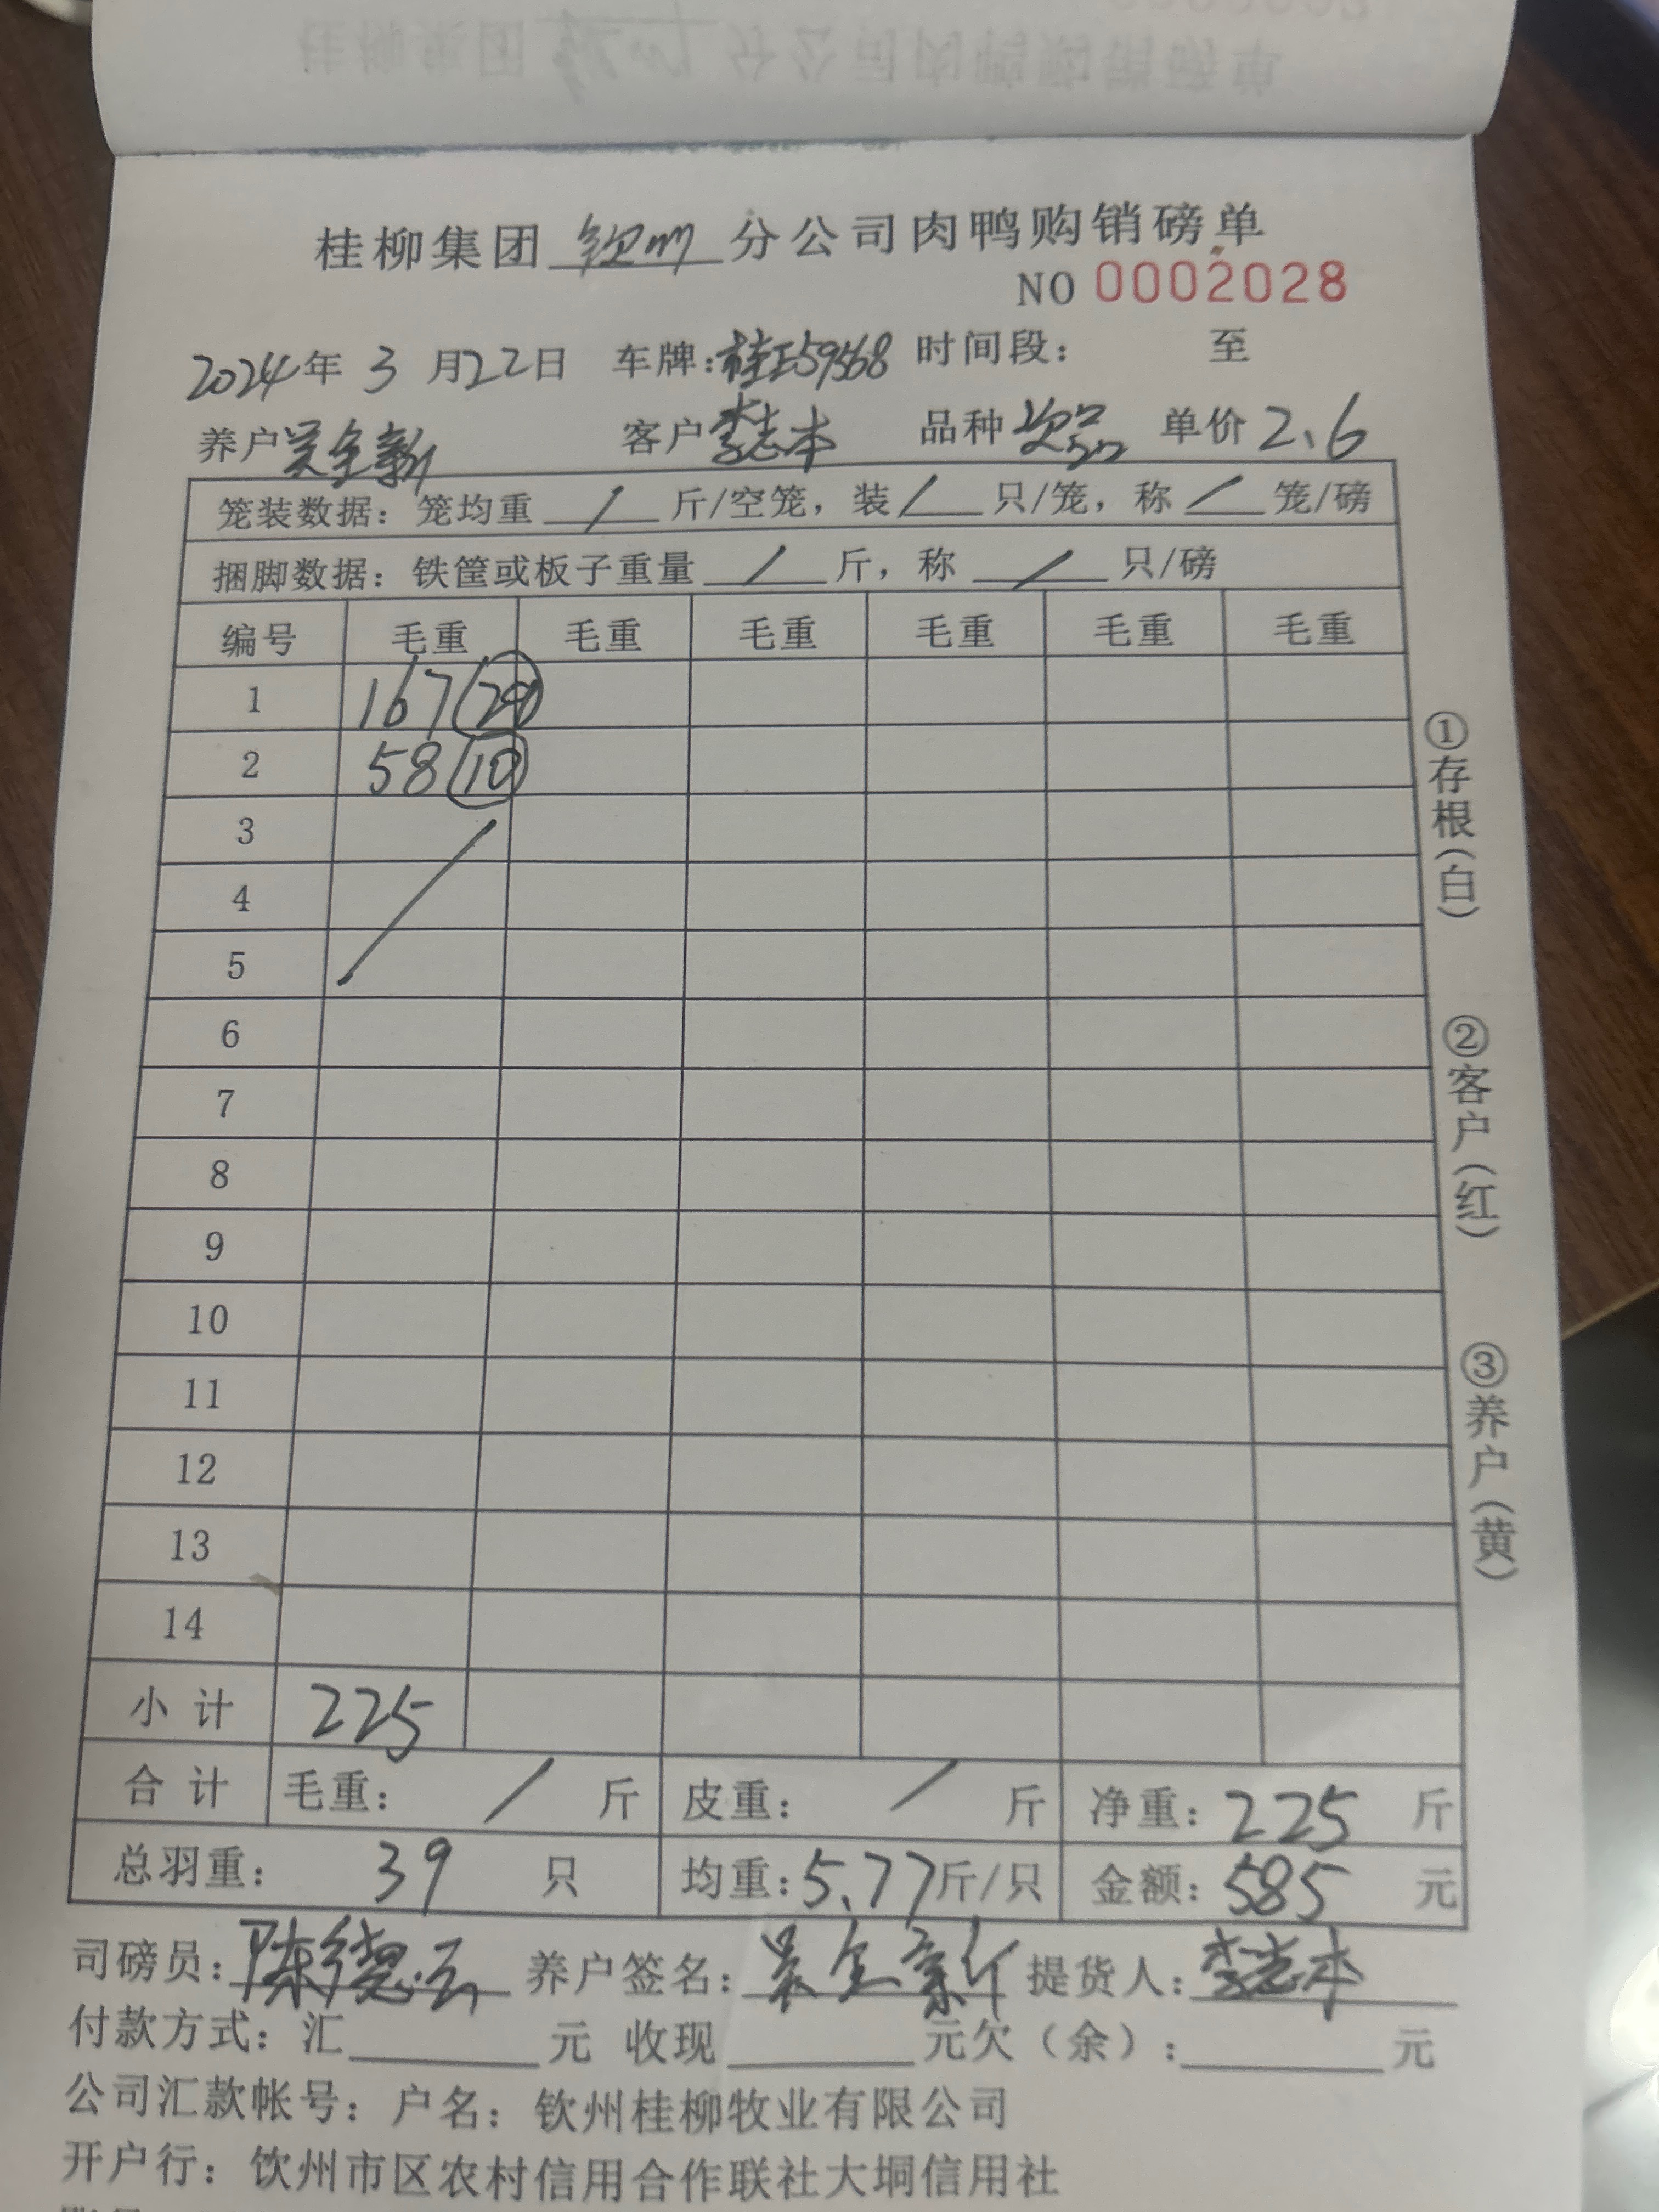 桂柳集团 钦州 分公司肉鸭购销磅单
NO 0002028
2024年 3 月22日 车牌:桂E59568 时间段: 至
养户 吴全新 客户 李志本 品种 次品 单价 2.6
笼装数据: 笼均重 / 斤/空笼, 装 / 只/笼, 称 / 笼/磅
捆脚数据: 铁筐或板子重量 / 斤, 称 / 只/磅
编号 毛重 毛重 毛重 毛重 毛重 毛重
1 167
2 58 (10)
3
4
5
6
7
8
9
10
11
12
13
14
小计 225
合计 毛重: / 斤 皮重: / 斤 净重: 225 斤
总羽重: 39 只 均重: 5.77 斤/只 金额: 585 元
①存根(白) ②客户(红) ③养户(黄)
司磅员: 陈德云 养户签名: 吴全新 提货人: 李志本
付款方式: 汇 元 收现 元欠(余): 元
公司汇款帐号: 户名: 钦州桂柳牧业有限公司
开户行: 饮州市区农村信用合作联社大垌信用社